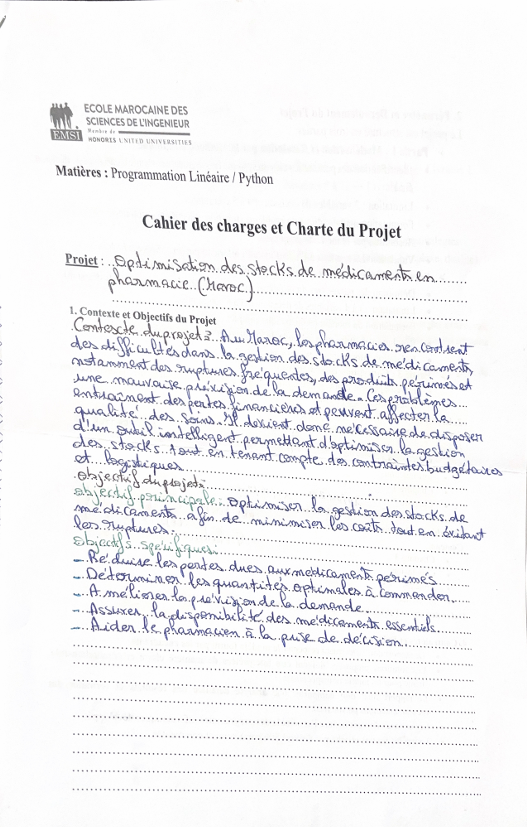 ECOLE MAROCAINE DES
SCIENCES DE L'INGENIEUR
Membre de
HONORIS UNITED UNIVERSITIES
EMSI
Matières : Programmation Linéaire / Python
Cahier des charges et Charte du Projet
Projet : Optimisation des stocks de médicaments en
pharmacie (Maroc)
1. Contexte et Objectifs du Projet
Contexte du projet : Au Maroc, les pharmacies rencontrent
des difficultés dans la gestion des stocks de médicaments,
notamment des ruptures fréquentes, des produits périmés et
une mauvaise prévision de la demande. Ces problèmes
entraînent des pertes financières et peuvent affecter la
qualité des soins. Il devient donc nécessaire de disposer
d'un outil intelligent permettant d'optimiser la gestion
des stocks tout en tenant compte des contraintes budgétaires
et logistiques
objectif du projet :
objectif principale : optimiser la gestion des stocks de
médicaments afin de minimiser les coûts tout en évitant
les ruptures.
objectifs spécifiques :
- Réduire les pertes dues aux médicaments périmés
- Déterminer les quantités optimales à commander
- Améliorer la prévision de la demande
- Assurer la disponibilité des médicaments essentiels
- Aider le pharmacien à la prise de décision